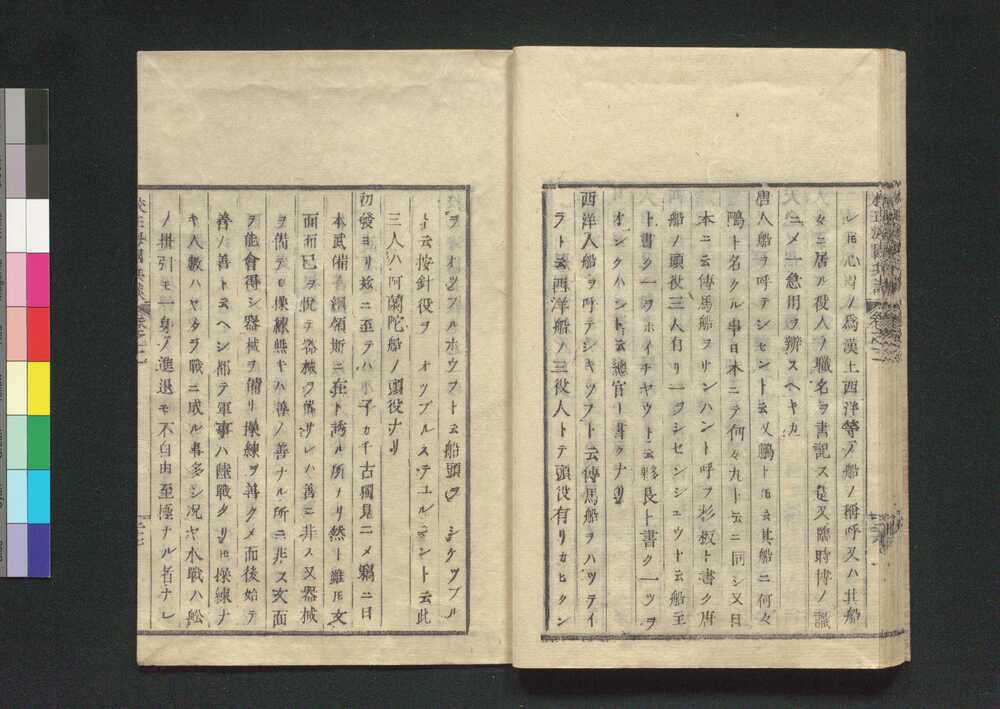 シ𪜈心得ノ為漢土西洋等ノ船ノ稱呼又ハ其船
々ニ居ル役人ノ職名ヲ書記ス是又臨時博ノ識
ニメ一急用ヲ辨スヘキカ
唐人船ヲ呼テシセント云又鵬ト𪜈云其船ニ何々
鵬ト名クル事日本ニテ何々丸ト云ニ同シ又日
本ニ云傳馬船ヲサンハント呼フ杉板ト書ク唐
船ノ頭役三人有リ一ヲシセンシュウト云船主
ト書ク一ヲホイチヤウト云夥長ト書ク一ツヲ
オンクハント云總官ト書クナリ
西洋人船ヲ呼テシキツフト云傳馬船ヲハツテイ
ラト云西洋船ノ三役人トテ頭役有リカヒタン
ヲ オツフルホウフト云船頭ヲ シケツプル
ト云按針役ヲ オツブルステユルマント云此
三人ハ阿蘭陀船ノ頭役ナリ
初發ヨリ玆ニ至テハ小子カ千古獨見ニメ竊ニ日
本武備ノ綱領斯ニ在ト誇ル所ナリ然ト雖𪜈文
面而已ヲ悦テ器械ヲ備サレハ善ニ非ス又器械
ヲ備テモ操練無キハ善ノ善ナル所ニ非ス文面
ヲ能會得シ器械ヲ備リ操練ヲ善クメ而後始テ
善ノ善ト云ヘシ都テ軍事ハ陸戰タリ𪜈操練ナ
キ人數ハヤクラ戰ニ成ル事多シ况ヤ水戰ハ舩
ノ掛引モ一身ノ進退モ不自由至極ナル者ナレ